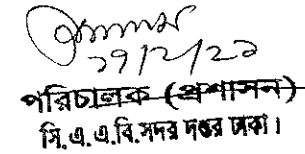 ২৭/২/২৯
পরিচালক (প্রশাসন)
সি.এ.এ.বি.সদর দপ্তর ঢাকা।